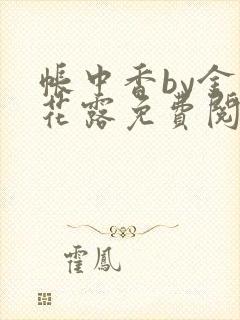 帳中香by金
花露免費閱
霍鳳